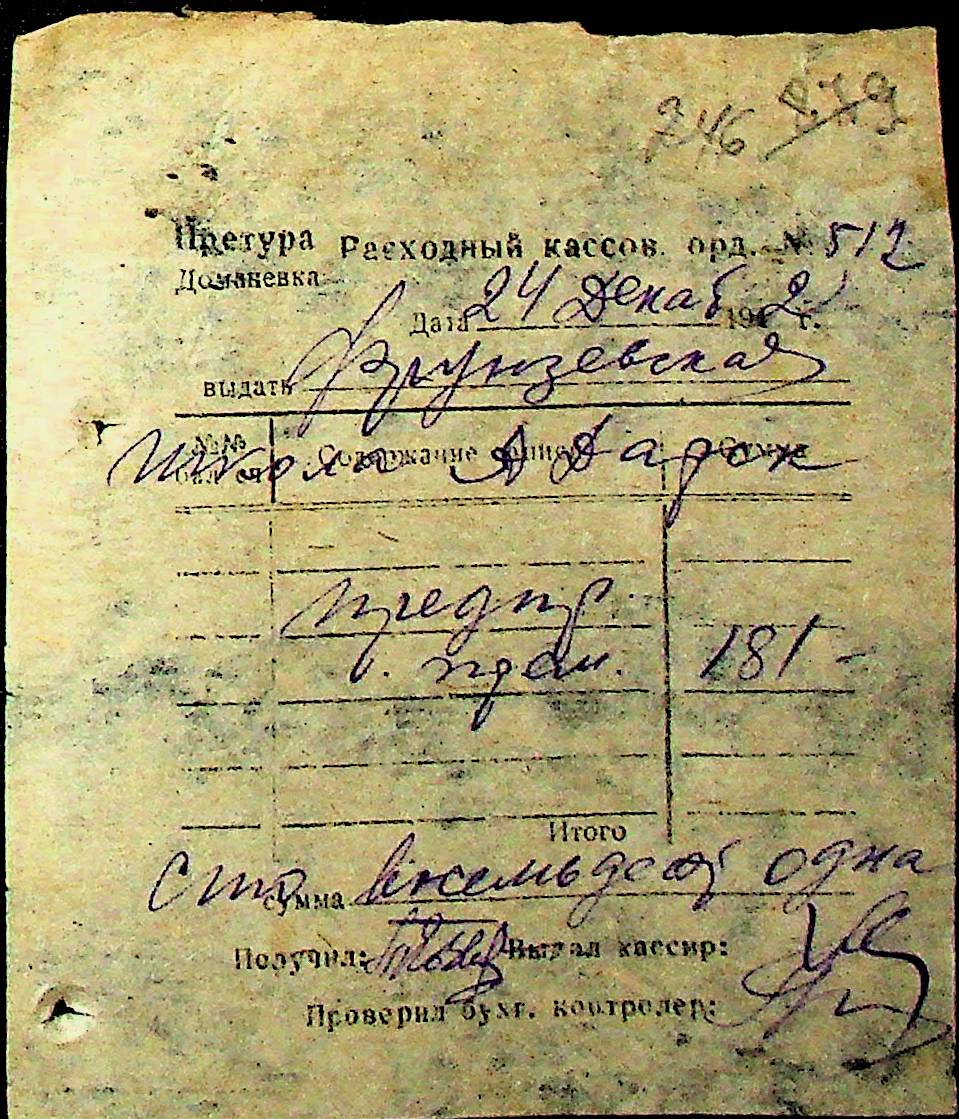 246 879
Претура Расходный кассов. орд. № 512
Доманевка
Дата 24 Декаб 194 2 г.
выдать Фрунзевская
школа
№№ Содержание Сумма
предпр.
181 -
Итого
Сто восемьдесят одна
сумма
Получил: Выдал кассир:
Проверил бухг. контролер: